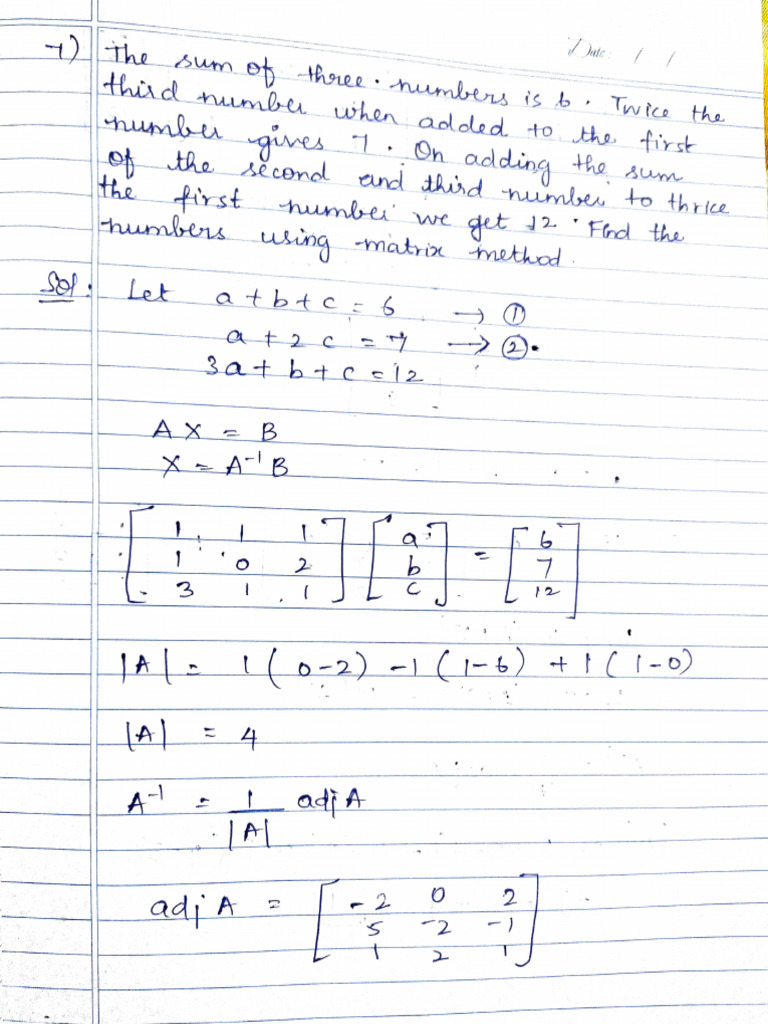 Date: / /
7) The sum of three numbers is 6. Twice the
third number when added to the first
number gives 7. On adding the sum
of the second and third number to thrice
the first number we get 12. Find the
numbers using matrix method.
Sol: Let a + b + c = 6 → ①
a + 2c = 7 → ②
3a + b + c = 12
AX = B
X = A⁻¹B
[ 1 1 1 ] [ a ] = [ 6 ]
[ 1 0 2 ] [ b ] [ 7 ]
[ 3 1 1 ] [ c ] [ 12 ]
|A| = 1(0-2) -1(1-6) + 1(1-0)
|A| = 4
A⁻¹ = 1/|A| adj A
adj A = [ -2 0 2 ]
[ 5 -2 -1 ]
[ 1 2 1 ]